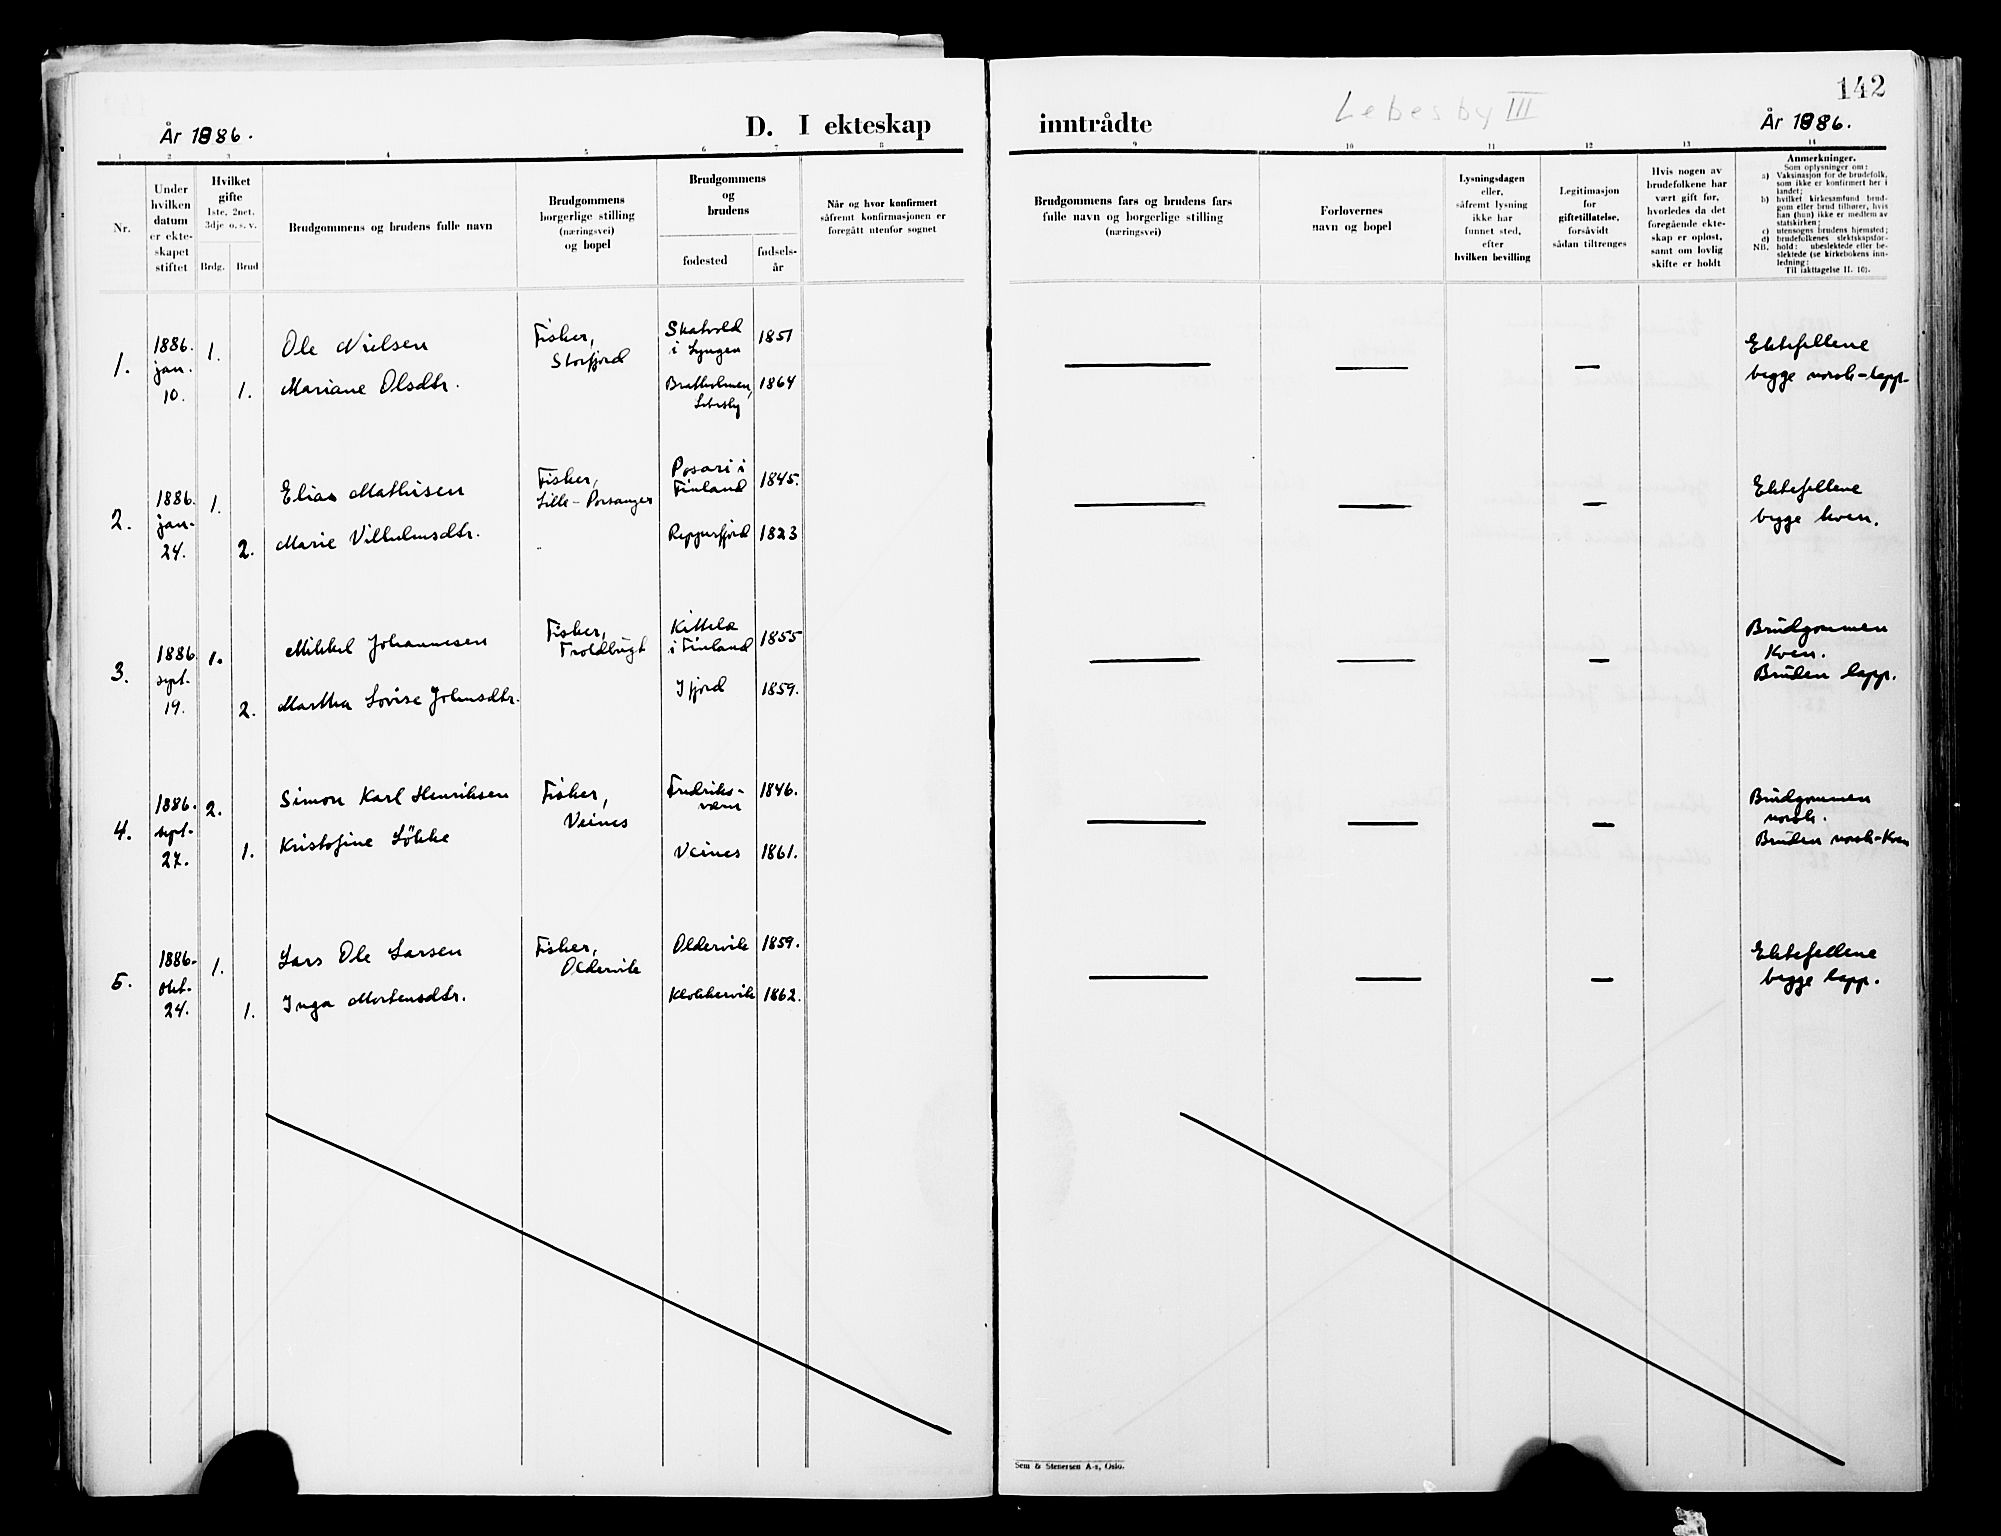 142
Lebesby III
År 1886.
D. I ekteskap
inntrådte
År 1886.
1 2 3 4 5 6 7 8
9 10 11 12 13 14
Nr.
Under
hvilken
datum
er ekte-
skapet
stiftet
Hvilket
gifte
1ste, 2net,
3dje o. s. v.
Brdg. Brud
Brudgommens og brudens fulle navn
Brudgommens
borgerlige stilling
(næringsvei)
og bopel
Brudgommens
og
brudens
fødested
fødsels-
år
Når og hvor konfirmert
såfremt konfirmasjonen er
foregått utenfor sognet
Brudgommens fars og brudens fars
fulle navn og borgerlige stilling
(næringsvei)
Forlovernes
navn og bopel
Lysningsdagen
eller,
såfremt lysning
ikke har
funnet sted,
efter
hvilken bevilling
Legitimasjon
for
giftetillatelse,
forsåvidt
sådan tiltrenges
Hvis nogen av
brudefolkene har
vært gift før,
hvorledes da det
foregående ekte-
skap er opløst,
samt om lovlig
skifte er holdt
Anmerkninger.
Som oplysninger om:
a) Vaksinasjon for de brudefolk,
som ikke er konfirmert her i
landet;
b) hvilket kirkesamfund brud-
gom eller brud tilhører, hvis
han (hun) ikke er medlem av
statskirken;
c) utensogns brudens hjemsted;
d) brudefolkenes slektskapsfor-
NB. hold: ubeslektede eller be-
slektede (se kirkebokens inn-
ledning:
Til iakttagelse II. 10).
1. 1886. jan. 10. 1. Ole Nielsen Fisker, Storfjord Skatvold i Lyngen 1851 — — — Ektefellene
1. Mariane Olsdtr. Bratholmen, Lebesby 1864 begge norsk-lapp.
2. 1886. jan. 24. 1. Elias Mathisen Fisker, Lille-Porsanger Posari i Finland 1845. — — — Ektefellene
2. Marie Vilhelmsdtr. " Repparfjord 1823 begge kven.
3. 1886 sept. 19. 1. Mikkel Johannesen Fisker, Troldbugt Kittela i Finland 1855 — — — Brudgommen
Kven.
2. Martha Lovise Johnsdtr. Ifjord 1859. Bruden lapp.
4. 1886. sept. 27. 2. Simon Karl Henriksen Fisker, Veines Fredriks-værn 1846. — — — Brudgommen
norsk.
1. Kristofine Løkke Veines 1861. Bruden norsk-Kven
5. 1886. okt. 24. 1. Lars Ole Larsen Fisker, Oldervik Oldervik 1859. — — — Ektefellene
1. Inga Mortensdtr. Klokkervik 1862. begge lapp.
Sem & Stenersen A-s, Oslo.